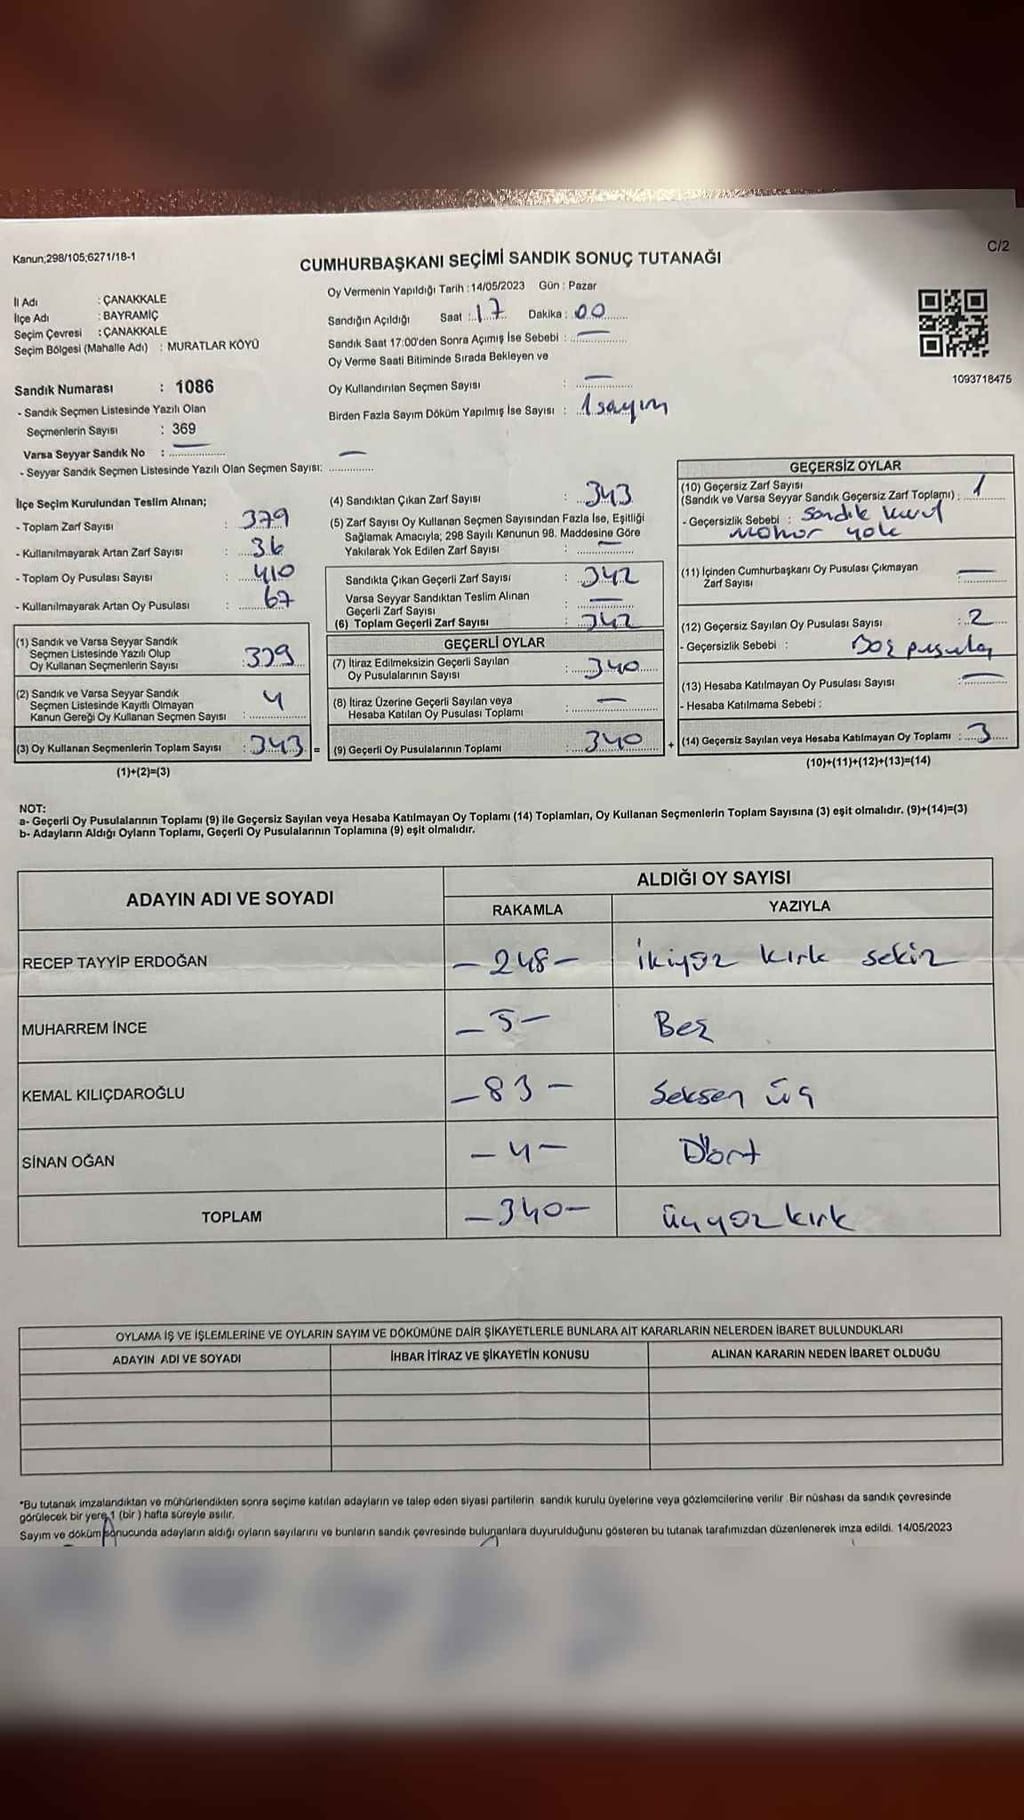 Kanun;298/105,6271/18-1
C/2
CUMHURBAŞKANI SEÇİMİ SANDIK SONUÇ TUTANAĞI
İl Adı : ÇANAKKALE
İlçe Adı : BAYRAMİÇ
Seçim Çevresi : ÇANAKKALE
Seçim Bölgesi (Mahalle Adı) : MURATLAR KÖYÜ
Oy Vermenin Yapıldığı Tarih : 14/05/2023 Gün : Pazar
Sandığın Açıldığı Saat : 17 Dakika : 00
Sandık Saat 17:00'den Sonra Açımış İse Sebebi : —
Oy Verme Saati Bitiminde Sırada Bekleyen ve
Oy Kullandırılan Seçmen Sayısı : —
Birden Fazla Sayım Döküm Yapılmış İse Sayısı : 1 sayım
1093718475
Sandık Numarası : 1086
- Sandık Seçmen Listesinde Yazılı Olan
Seçmenlerin Sayısı : 369
Varsa Seyyar Sandık No : —
- Seyyar Sandık Seçmen Listesinde Yazılı Olan Seçmen Sayısı: —
İlçe Seçim Kurulundan Teslim Alınan;
- Toplam Zarf Sayısı : 379
- Kullanılmayarak Artan Zarf Sayısı : 36
- Toplam Oy Pusulası Sayısı : 410
- Kullanılmayarak Artan Oy Pusulası : 67
(1) Sandık ve Varsa Seyyar Sandık
Seçmen Listesinde Yazılı Olup
Oy Kullanan Seçmenlerin Sayısı : 339
(2) Sandık ve Varsa Seyyar Sandık
Seçmen Listesinde Kayıtlı Olmayan
Kanun Gereği Oy Kullanan Seçmen Sayısı : 4
(3) Oy Kullanan Seçmenlerin Toplam Sayısı : 343 =
(1)+(2)=(3)
(4) Sandıktan Çıkan Zarf Sayısı : 343
(5) Zarf Sayısı Oy Kullanan Seçmen Sayısından Fazla İse, Eşitliği
Sağlamak Amacıyla; 298 Sayılı Kanunun 98. Maddesine Göre
Yakılarak Yok Edilen Zarf Sayısı : —
Sandıkta Çıkan Geçerli Zarf Sayısı : 342
Varsa Seyyar Sandıktan Teslim Alınan
Geçerli Zarf Sayısı : —
(6) Toplam Geçerli Zarf Sayısı : 342
GEÇERLİ OYLAR
(7) İtiraz Edilmeksizin Geçerli Sayılan
Oy Pusulalarının Sayısı : 340
(8) İtiraz Üzerine Geçerli Sayılan veya
Hesaba Katılan Oy Pusulası Toplamı : —
(9) Geçerli Oy Pusulalarının Toplamı : 340 +
GEÇERSİZ OYLAR
(10) Geçersiz Zarf Sayısı
(Sandık ve Varsa Seyyar Sandık Geçersiz Zarf Toplamı) : 1
- Geçersizlik Sebebi : Sandık
yok
(11) İçinden Cumhurbaşkanı Oy Pusulası Çıkmayan
Zarf Sayısı : —
(12) Geçersiz Sayılan Oy Pusulası Sayısı : 2
- Geçersizlik Sebebi : Boş pusula
(13) Hesaba Katılmayan Oy Pusulası Sayısı : —
- Hesaba Katılmama Sebebi :
(14) Geçersiz Sayılan veya Hesaba Katılmayan Oy Toplamı : 3
(10)+(11)+(12)+(13)=(14)
NOT:
a- Geçerli Oy Pusulalarının Toplamı (9) ile Geçersiz Sayılan veya Hesaba Katılmayan Oy Toplamı (14) Toplamları, Oy Kullanan Seçmenlerin Toplam Sayısına (3) eşit olmalıdır. (9)+(14)=(3)
b- Adayların Aldığı Oyların Toplamı, Geçerli Oy Pusulalarının Toplamına (9) eşit olmalıdır.
ADAYIN ADI VE SOYADI
ALDIĞI OY SAYISI
RAKAMLA YAZIYLA
RECEP TAYYİP ERDOĞAN -248- İkiyüz kırk sekiz
MUHARREM İNCE -5- Beş
KEMAL KILIÇDAROĞLU -83- Seksen üç
SİNAN OĞAN -4- Dört
TOPLAM -340- üçyüz kırk
OYLAMA İŞ VE İŞLEMLERİNE VE OYLARIN SAYIM VE DÖKÜMÜNE DAİR ŞİKAYETLERLE BUNLARA AİT KARARLARIN NELERDEN İBARET BULUNDUKLARI
ADAYIN ADI VE SOYADI İHBAR İTİRAZ VE ŞİKAYETİN KONUSU ALINAN KARARIN NEDEN İBARET OLDUĞU
*Bu tutanak imzalandıktan ve mühürlendikten sonra seçime katılan adayların ve talep eden siyasi partilerin sandık kurulu üyelerine veya gözlemcilerine verilir. Bir nüshası da sandık çevresinde
görülecek bir yere 1 (bir ) hafta süreyle asılır.
Sayım ve döküm sonucunda adayların aldığı oyların sayılarını ve bunların sandık çevresinde bulunanlara duyurulduğunu gösteren bu tutanak tarafımızdan düzenlenerek imza edildi. 14/05/2023